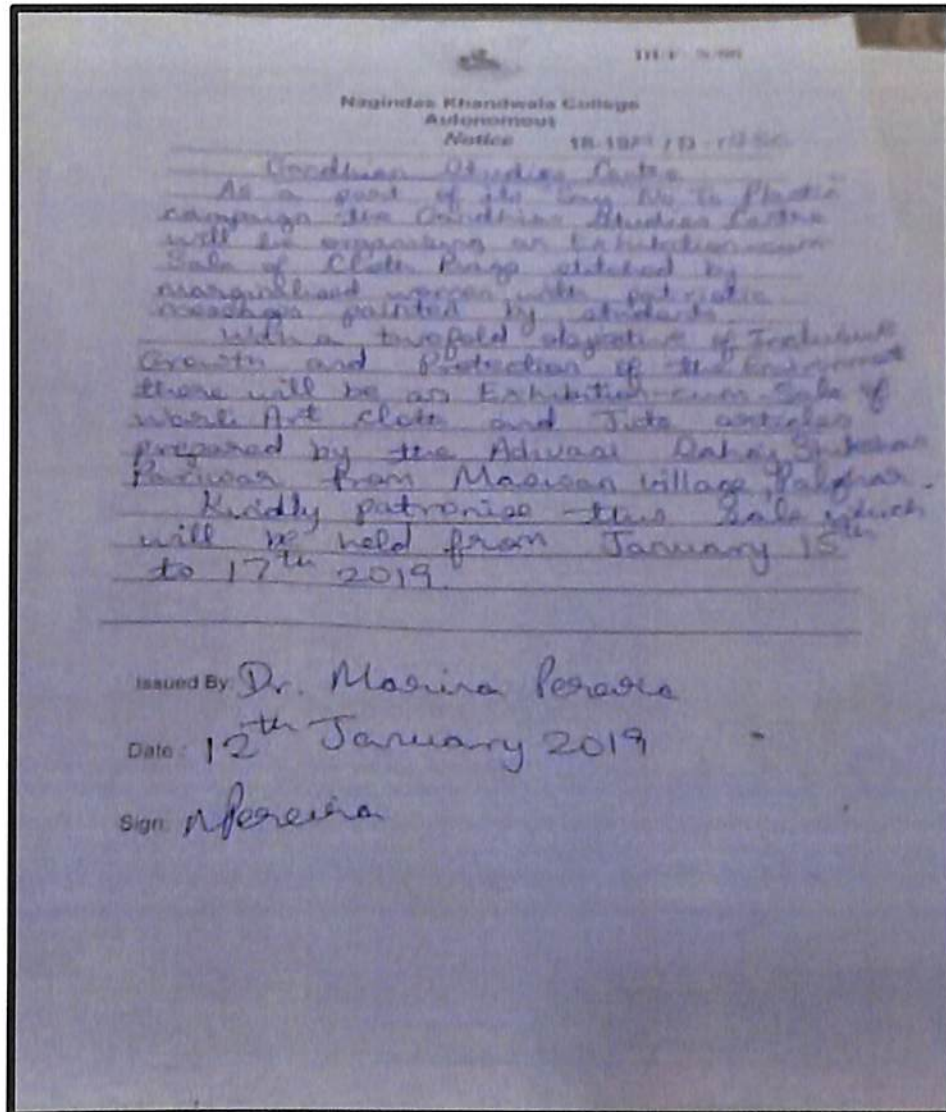 Nagindas Khandwala College
Autonomous
Notice 18-19
Gandhian Studies Centre
As a part of its Say No To Plastic
campaign the Gandhian Studies Centre
will be organising an Exhibition-cum
Sale of Cloth Bags stitched by
marginalised women with patriotic
messages painted by students
With a twofold objective of Inclusive
Growth and Protection of the Environment
there will be an Exhibition-cum-Sale of
Warli Art cloth and Jute articles
prepared by the Adivasi
Parivar from village, Palghar.
Kindly patronise this Sale which
will be held from January 15th
to 17th 2019
Issued By: Dr. Marina Pereira
Date: 12th January 2019
Sign: MPereira